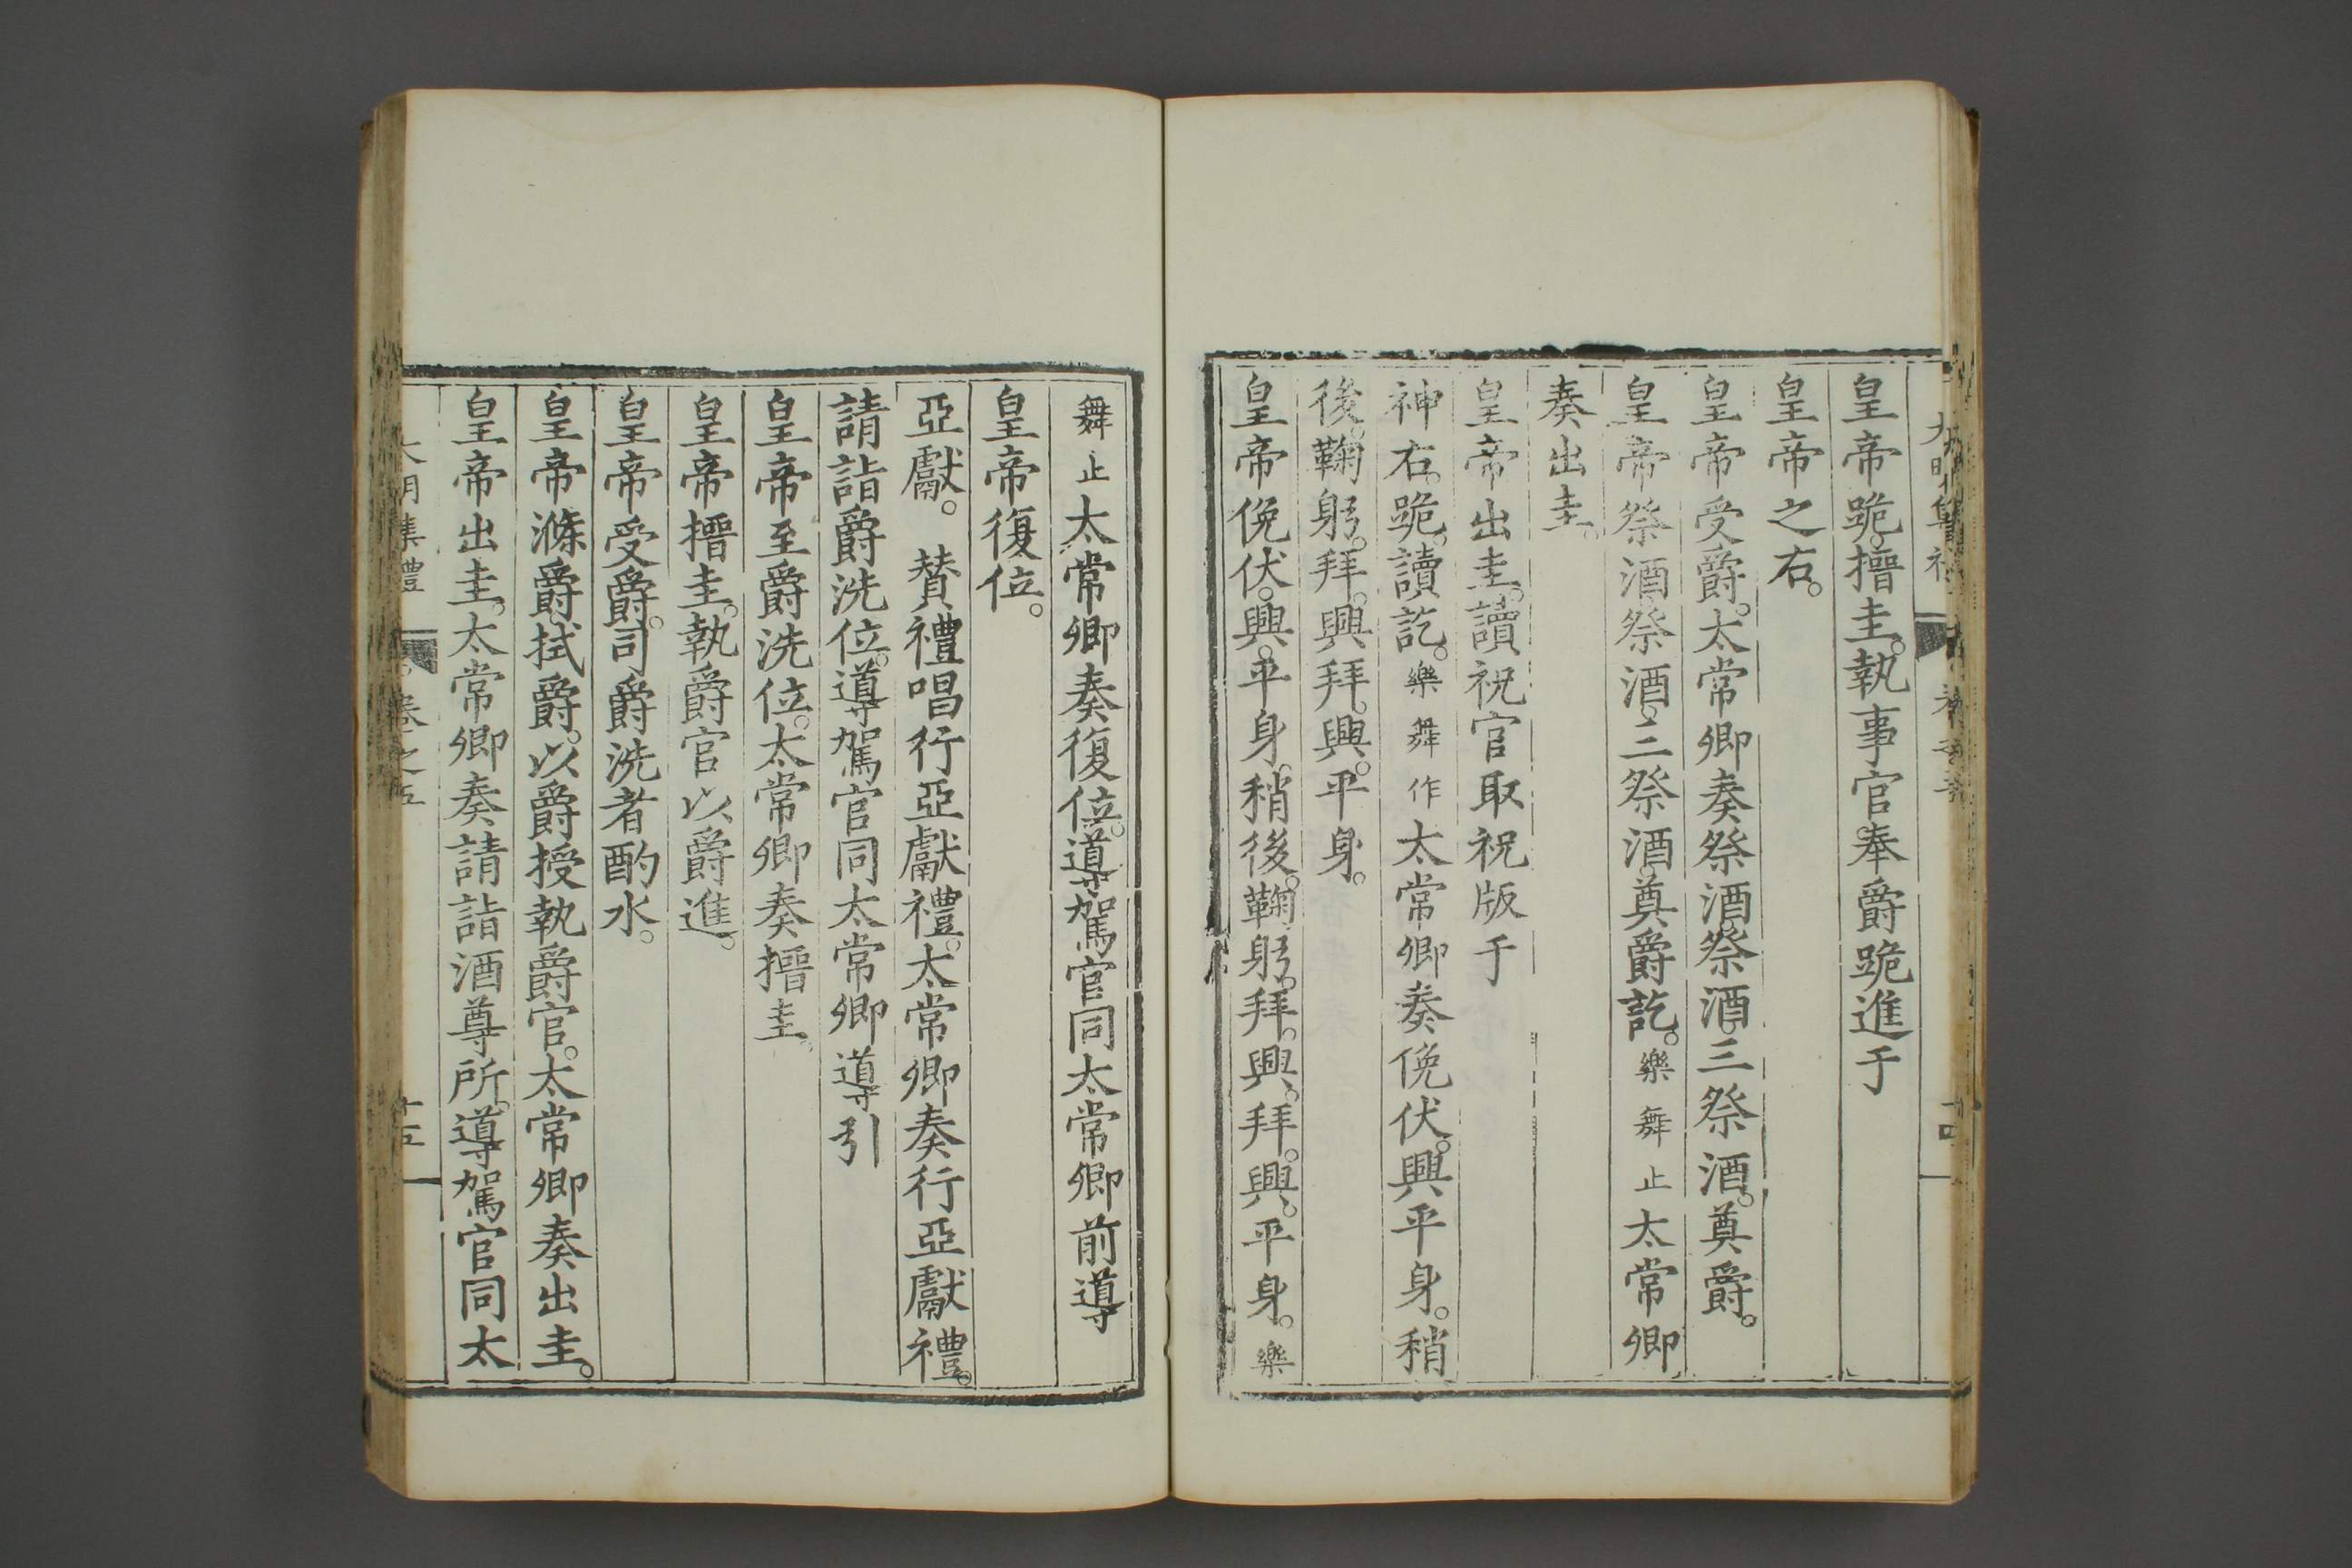 皇帝跪。搢圭。執事官奉爵跪進于
皇帝之右。
皇帝受爵。太常卿奏祭酒。祭酒。三祭酒。奠爵。
皇帝祭酒。祭酒。三祭酒。奠爵訖。樂舞止太常卿
奏出圭。
皇帝出圭。讀祝官取祝版于
神右。跪。讀訖。樂舞作太常卿奏俛伏。興平身。稍
後。鞠躬。拜。興拜。興。平身。
皇帝俛伏。興。平身。稍後。鞠躬。拜。興。拜。興。平身。樂
舞止太常卿奏復位。導駕官同太常卿前導
皇帝復位。
亞獻。 贊禮唱行亞獻禮。太常卿奏行亞獻禮。
請詣爵洗位。導駕官同太常卿導引
皇帝至爵洗位。太常卿奏搢圭。
皇帝搢圭。執爵官以爵進。
皇帝受爵。司爵洗者酌水。
皇帝滌爵。拭爵。以爵授執爵官。太常卿奏出圭。
皇帝出圭。太常卿奏請詣酒尊所。導駕官同太
大明集禮 卷之五 十五